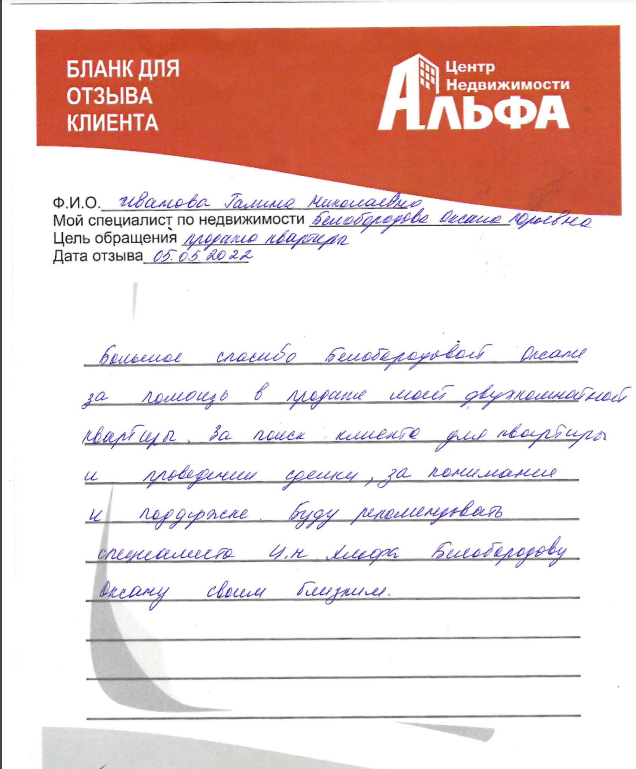 БЛАНК ДЛЯ
ОТЗЫВА
КЛИЕНТА
Центр
Недвижимости
АЛЬФА
Ф.И.О. Иванова Галина Николаевна
Мой специалист по недвижимости Белобородова Оксана Юрьевна
Цель обращения продажа квартиры
Дата отзыва 05.05.2022
Большое спасибо Белобородовой Оксане
за помощь в продаже моей двухкомнатной
квартиры. За поиск клиента для квартиры
и проведении сделки, за понимание
и поддержке. Буду рекомендовать
специалиста Ц.Н Альфа Белобородову
Оксану своим близким.